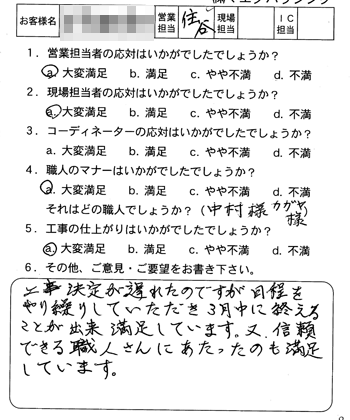 お客様名 営業担当 住谷 現場担当 IC担当
1．営業担当者の応対はいかがでしたでしょうか？
a. 大変満足 b. 満足 c. やや不満 d. 不満
2．現場担当者の応対はいかがでしたでしょうか？
a. 大変満足 b. 満足 c. やや不満 d. 不満
3．コーディネーターの応対はいかがでしたでしょうか？
a. 大変満足 b. 満足 c. やや不満 d. 不満
4．職人のマナーはいかがでしたでしょうか？
a. 大変満足 b. 満足 c. やや不満 d. 不満
それはどの職人でしょうか？（中村様 カガヤ様
5．工事の仕上がりはいかがでしたでしょうか？
a. 大変満足 b. 満足 c. やや不満 d. 不満
6．その他、ご意見・ご要望をお書き下さい。
工事決定が遅れたのですが日程を
やり繰りしていただき3月中に終える
ことが出来満足しています。又、信頼
できる職人さんにあたったのも満足
しています。